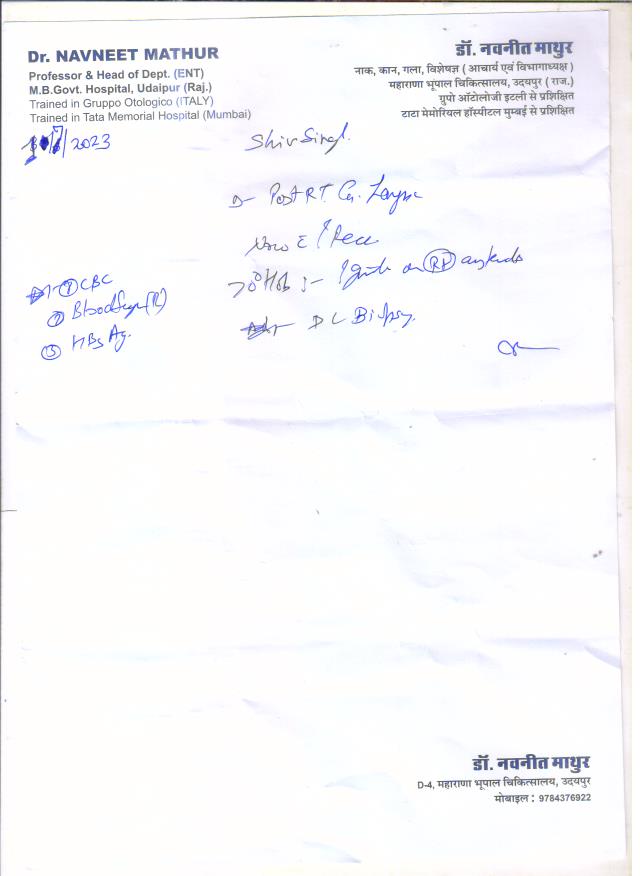 Dr. NAVNEET MATHUR
Professor & Head of Dept. (ENT)
M.B.Govt. Hospital, Udaipur (Raj.)
Trained in Gruppo Otologico (ITALY)
Trained in Tata Memorial Hospital (Mumbai)
डॉ. नवनीत माथुर
नाक, कान, गला, विशेषज्ञ ( आचार्य एवं विभागाध्यक्ष )
महाराणा भूपाल चिकित्सालय, उदयपुर ( राज.)
ग्रुपो ऑटोलोजी इटली से प्रशिक्षित
टाटा मेमोरियल हॉस्पीटल मुम्बई से प्रशिक्षित
/2023
Shiv Singh
Post RT Ca. Larynx
① CBC
② Blood Sugar (R)
③ HBs Ag.
70° Hob :- on RT
DL Biopsy.
डॉ. नवनीत माथुर
D-4, महाराणा भूपाल चिकित्सालय, उदयपुर
मोबाइल : 9784376922